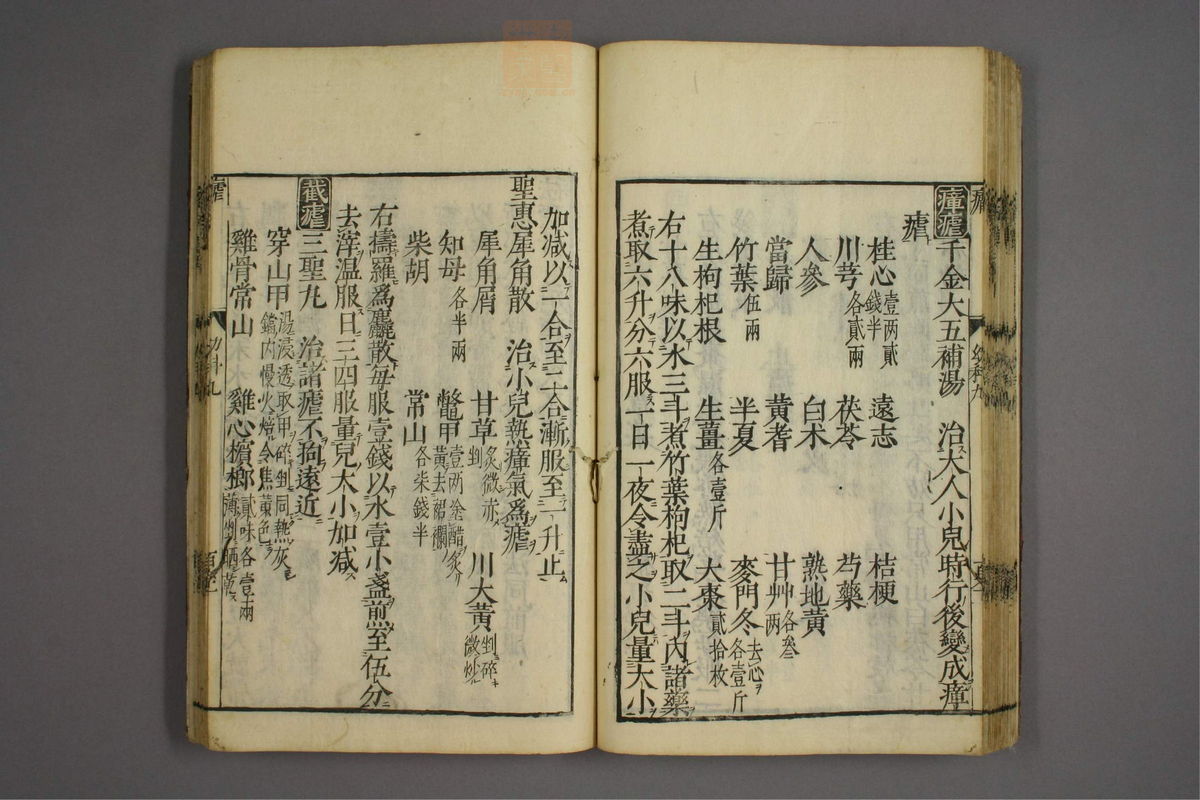 瘴瘧 千金大五補湯 治大人小兒時行後變成瘴
瘧
桂心 壹两貳錢半 遠志 桔梗
川芎 各貳兩 茯苓 芍藥
人參 白术 熟地黄
當歸 黄耆 甘艸 各叄两
竹葉 伍兩 半夏 麥門冬 去心各壹斤
生枸杞根 生薑 各壹斤 大棗 貳拾枚
右十八味以水三斗煮竹葉枸杞取二斗内諸藥
煮取六升分六服一日一夜令盡之小兒量大小
加减以一合至二合漸服至一升止
聖惠犀角散 治小兒熱瘴氣爲瘧
犀角屑 甘草 炙微赤剉 川大黄 剉碎微炒
知母 各半兩 鼈甲 壹两塗醋炙黄去裙襴
柴胡 常山 各柒錢半
右擣羅爲麤散每服壹錢以水壹小盞煎至伍分
去滓温服日三四服量兒大小加减
截瘧 三聖丸 治諸瘧不拘遠近
穿山甲 湯浸透取甲碎剉同熱灰鐺内慢火焙令焦黄色
雞骨常山 雞心檳榔 貳味各壹兩薄剉晒乾